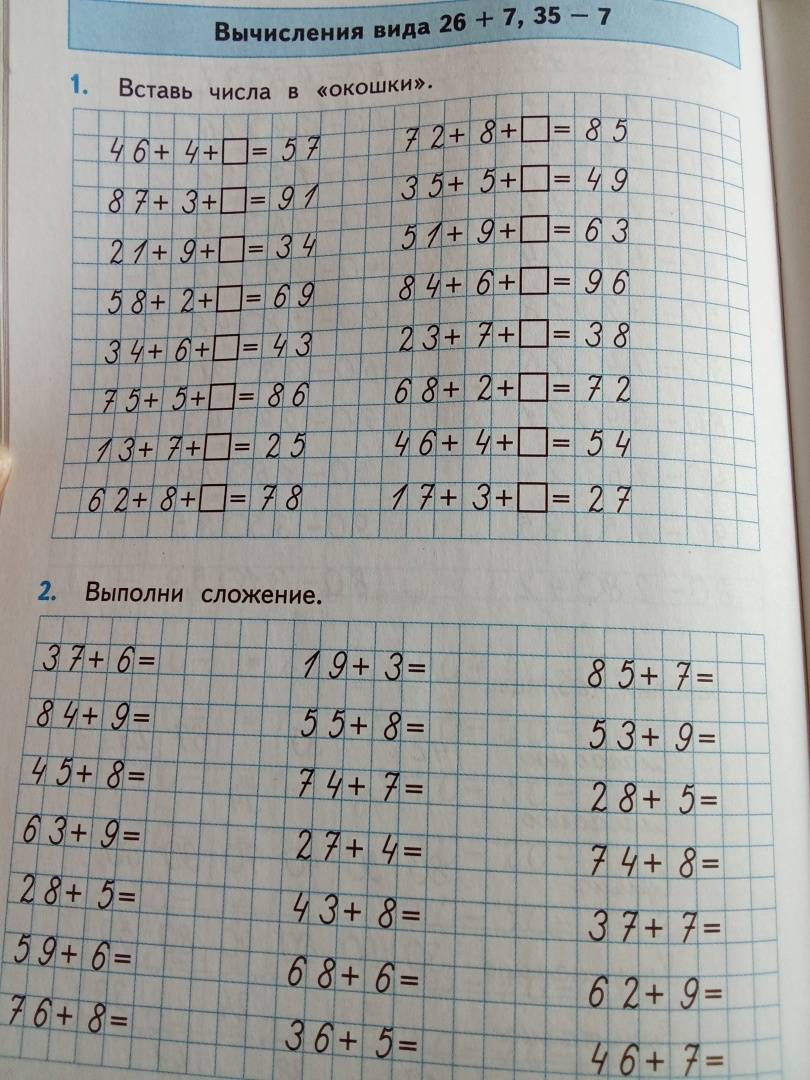 Вычисления вида 26 + 7, 35 − 7
1. Вставь числа в «окошки».
46+ 4+□= 57 72+ 8+□= 85
87+ 3+□= 91 35+ 5+□= 49
21+ 9+□= 34 51+ 9+□= 63
58+ 2+□= 69 84+ 6+□= 96
34+ 6+□= 43 23+ 7+□= 38
75+ 5+□= 86 68+ 2+□= 72
13+ 7+□= 25 46+ 4+□= 54
62+ 8+□= 78 17+ 3+□= 27
2. Выполни сложение.
37+ 6= 19+ 3= 85+ 7=
84+ 9= 55+ 8= 53+ 9=
45+ 8= 74+ 7= 28+ 5=
63+ 9= 27+ 4= 74+ 8=
28+ 5= 43+ 8= 37+ 7=
59+ 6= 68+ 6= 62+ 9=
76+ 8= 36+ 5= 46+ 7=